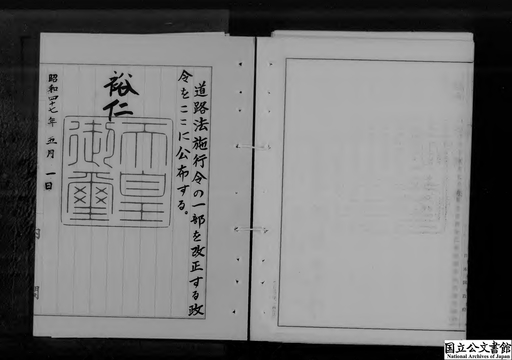 道路法施行令の一部を改正する政
令をここに公布する。
裕仁
天皇
御璽
昭和四十七年 五月 一日
内
閣
国立公文書館
National Archives of Japan